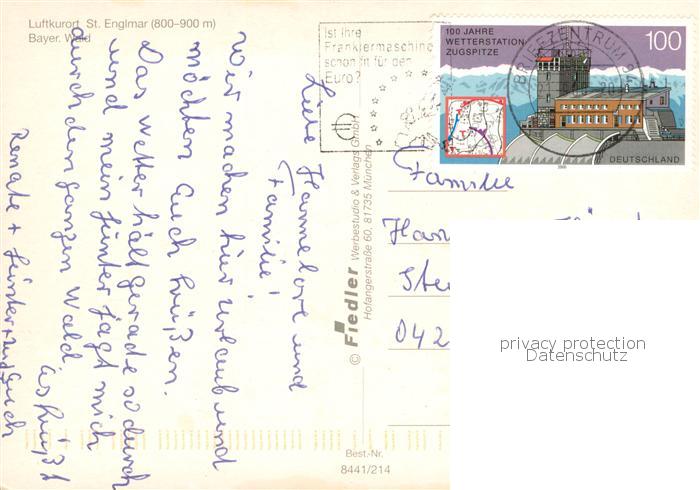 Luftkurort St. Englmar (800–900 m)
Bayer. Wald
Liebe Hannelore und
Familie!
Wir machen hier Urlaub und
möchten Euch Grüßen.
Das Wetter hält gerade so durch
und mein Günter jagt mich
durch den ganzen Wald.
Es Grüßt
Euch
Renate + Günter
© Fiedler Werbestudio & Verlags GmbH
Hofangerstraße 60, 81735 München
Best.-Nr.
8441/214
Ist Ihre
Frankiermaschine
schon fit für den
Euro?
100 JAHRE
WETTERSTATION
ZUGSPITZE
100
BRIEFZENTRUM
DEUTSCHLAND
2000
Familie
Han
Ste
042
privacy protection
Datenschutz